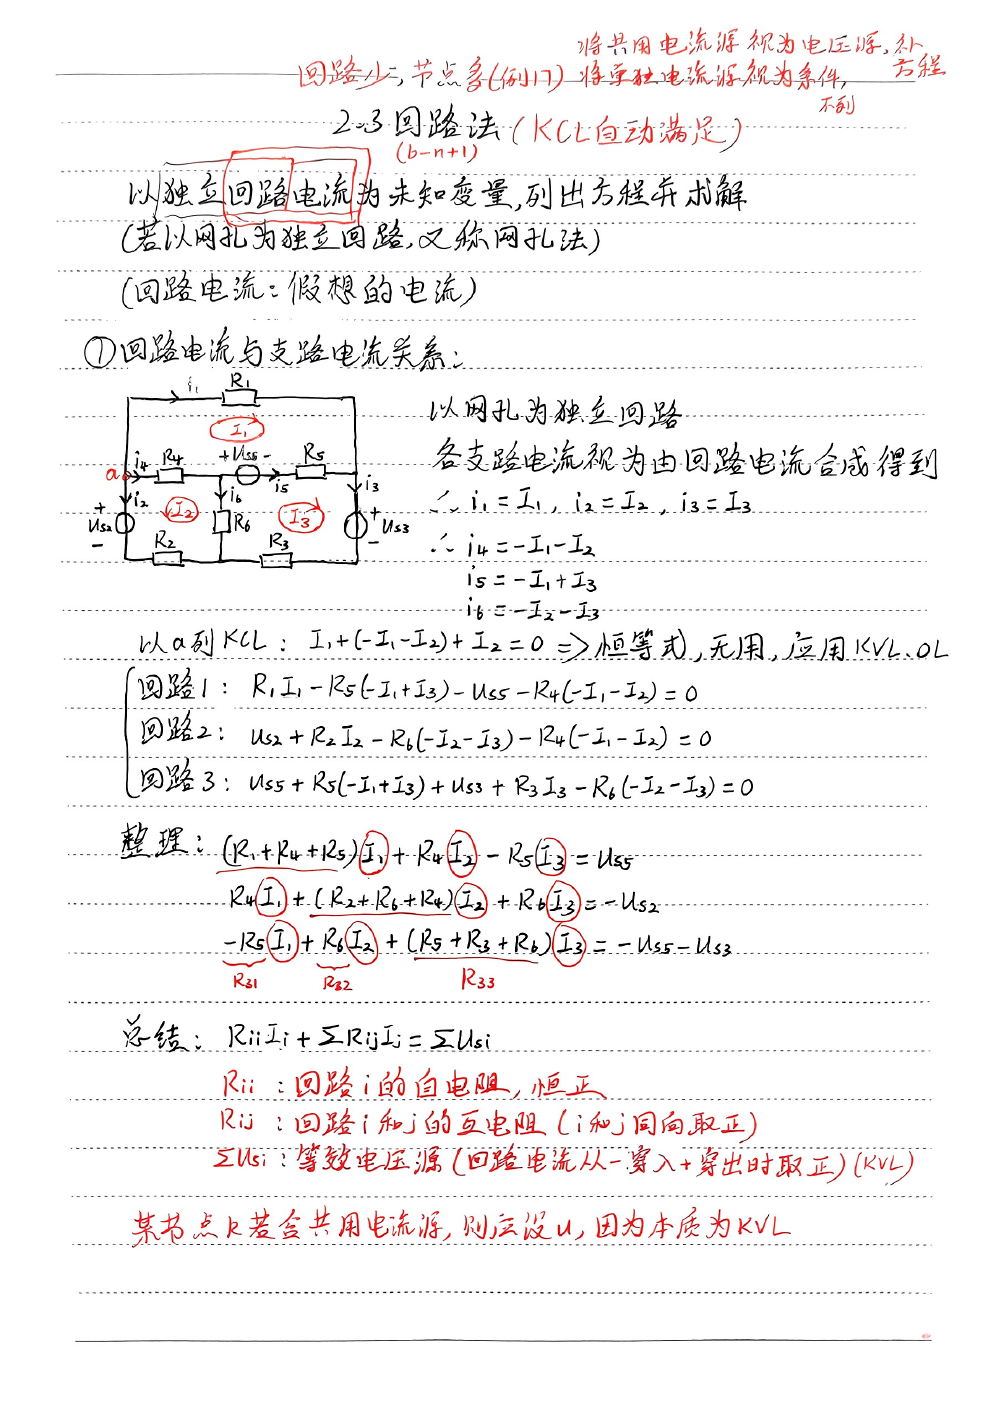 将共用电流源视为电压源,补方程
回路少,节点多(例17) 将单独电流源视为条件,不列
2.3 回路法(KCL自动满足)
(b-n+1)
以独立回路电流为未知变量,列出方程并求解
(若以网孔为独立回路,又称网孔法)
(回路电流:假想的电流)
①回路电流与支路电流关系:
i₁ R₁
I₁
a i₄ R₄ + Us5 - i₅ R₅
i₂ I₂ i₆ I₃ i₃
+ Us2 - R₆ + Us3 -
R₂ R₃
以网孔为独立回路
各支路电流视为由回路电流合成得到
∴ i₁ = I₁, i₂ = I₂, i₃ = I₃
∴ i₄ = -I₁-I₂
i₅ = -I₁+I₃
i₆ = -I₂-I₃
以a列KCL: I₁+(-I₁-I₂)+I₂=0 => 恒等式,无用,应用KVL、OL
回路1: R₁I₁-R₅(-I₁+I₃)-Us5-R₄(-I₁-I₂)=0
回路2: Us2+R₂I₂-R₆(-I₂-I₃)-R₄(-I₁-I₂)=0
回路3: Us5+R₅(-I₁+I₃)+Us3+R₃I₃-R₆(-I₂-I₃)=0
整理: (R₁+R₄+R₅)I₁+R₄I₂-R₅I₃=Us5
R₄I₁+(R₂+R₆+R₄)I₂+R₆I₃=-Us2
-R₅I₁+R₆I₂+(R₅+R₃+R₆)I₃=-Us5-Us3
R31 R32 R33
总结: RiiIi+ΣRijIj=ΣUsi
Rii:回路i的自电阻,恒正
Rij:回路i和j的互电阻(i和j同向取正)
ΣUsi:等效电压源(回路电流从-穿入+穿出时取正)(KVL)
某节点k若含共用电流源,则应设u,因为本质为KVL